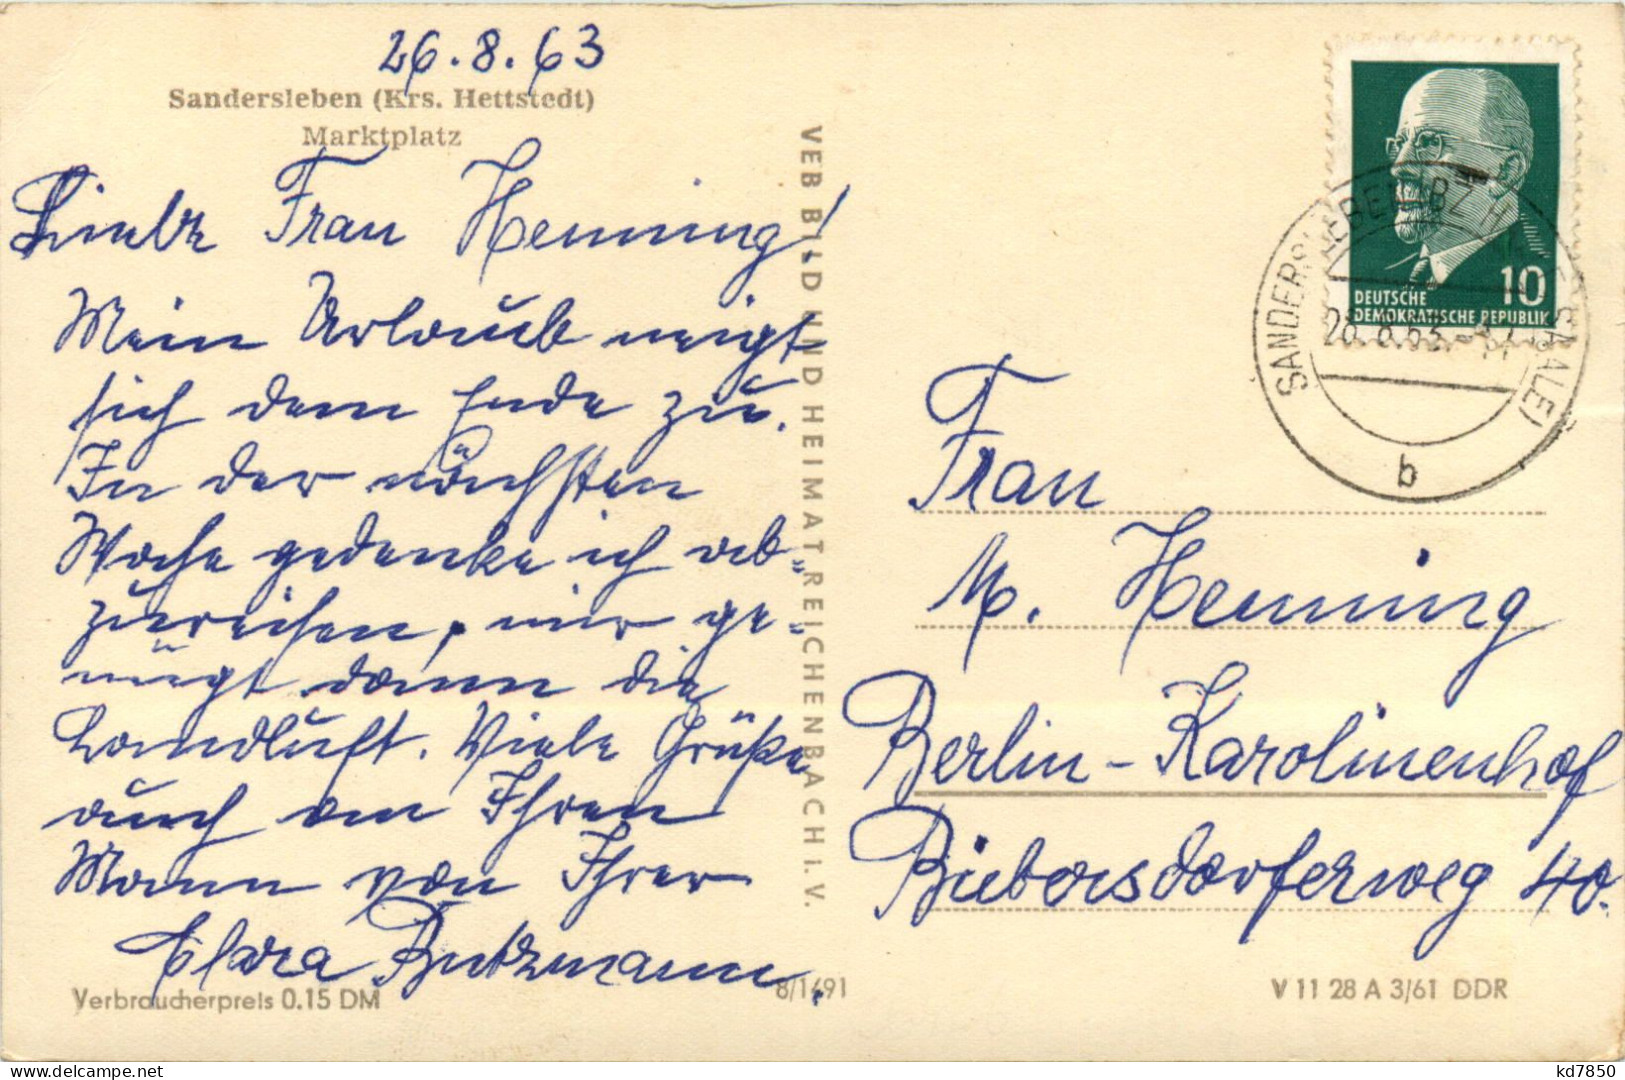 26.8.63
Sandersleben (Krs. Hettstedt)
Marktplatz
Liebe Frau Henning!
Mein Urlaub neigt
sich dem Ende zu.
In der nächsten
Woche gedenke ich ab-
zureisen, mir ge-
nügt dann die
Landluft. Viele Grüße
auch an Ihren
Mann von Ihrer
Clara Butzmann.
Verbraucherpreis 0.15 DM
8/1491
VEB BILD UND HEIMAT REICHENBACH I. V.
10
DEUTSCHE
DEMOKRATISCHE REPUBLIK
SANDERSLEBEN BZ HALLE (SAALE)
b
Frau
M. Henning
Berlin-Karolinenhof
Biebersdorferweg 40.
V 11 28 A 3/61 DDR
kd7850